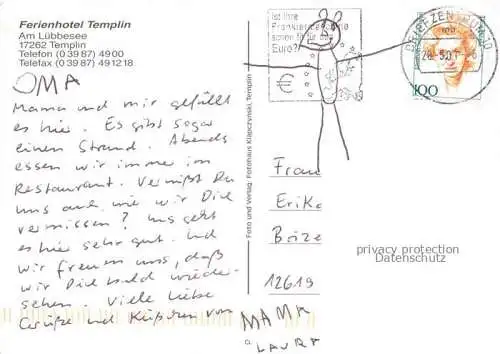 Ferienhotel Templin
Am Lübbesee
17262 Templin
Telefon (0 39 87) 49 00
Telefax (0 39 87) 49 12 18
OMA
Mama und mir gefällt
es hier. Es gibt sogar
einen Strand. Abends
essen wir immer im
Restaurant. Vermißt Du
uns auch wie wir Dich
vermissen? Uns geht
es hier sehr gut. Und
wir freuen uns, daß
wir Dich bald wieder
sehen. Viele liebe
Grüße und Küßchen von
MAMA
LAURA
Foto und Verlag: Fotohaus Klapczynski, Templin
Ist Ihre
schon fit für den
Euro?
€
BRIEFZENTRUM
100
Frau
Erika
12619
privacy protection
Datenschutz